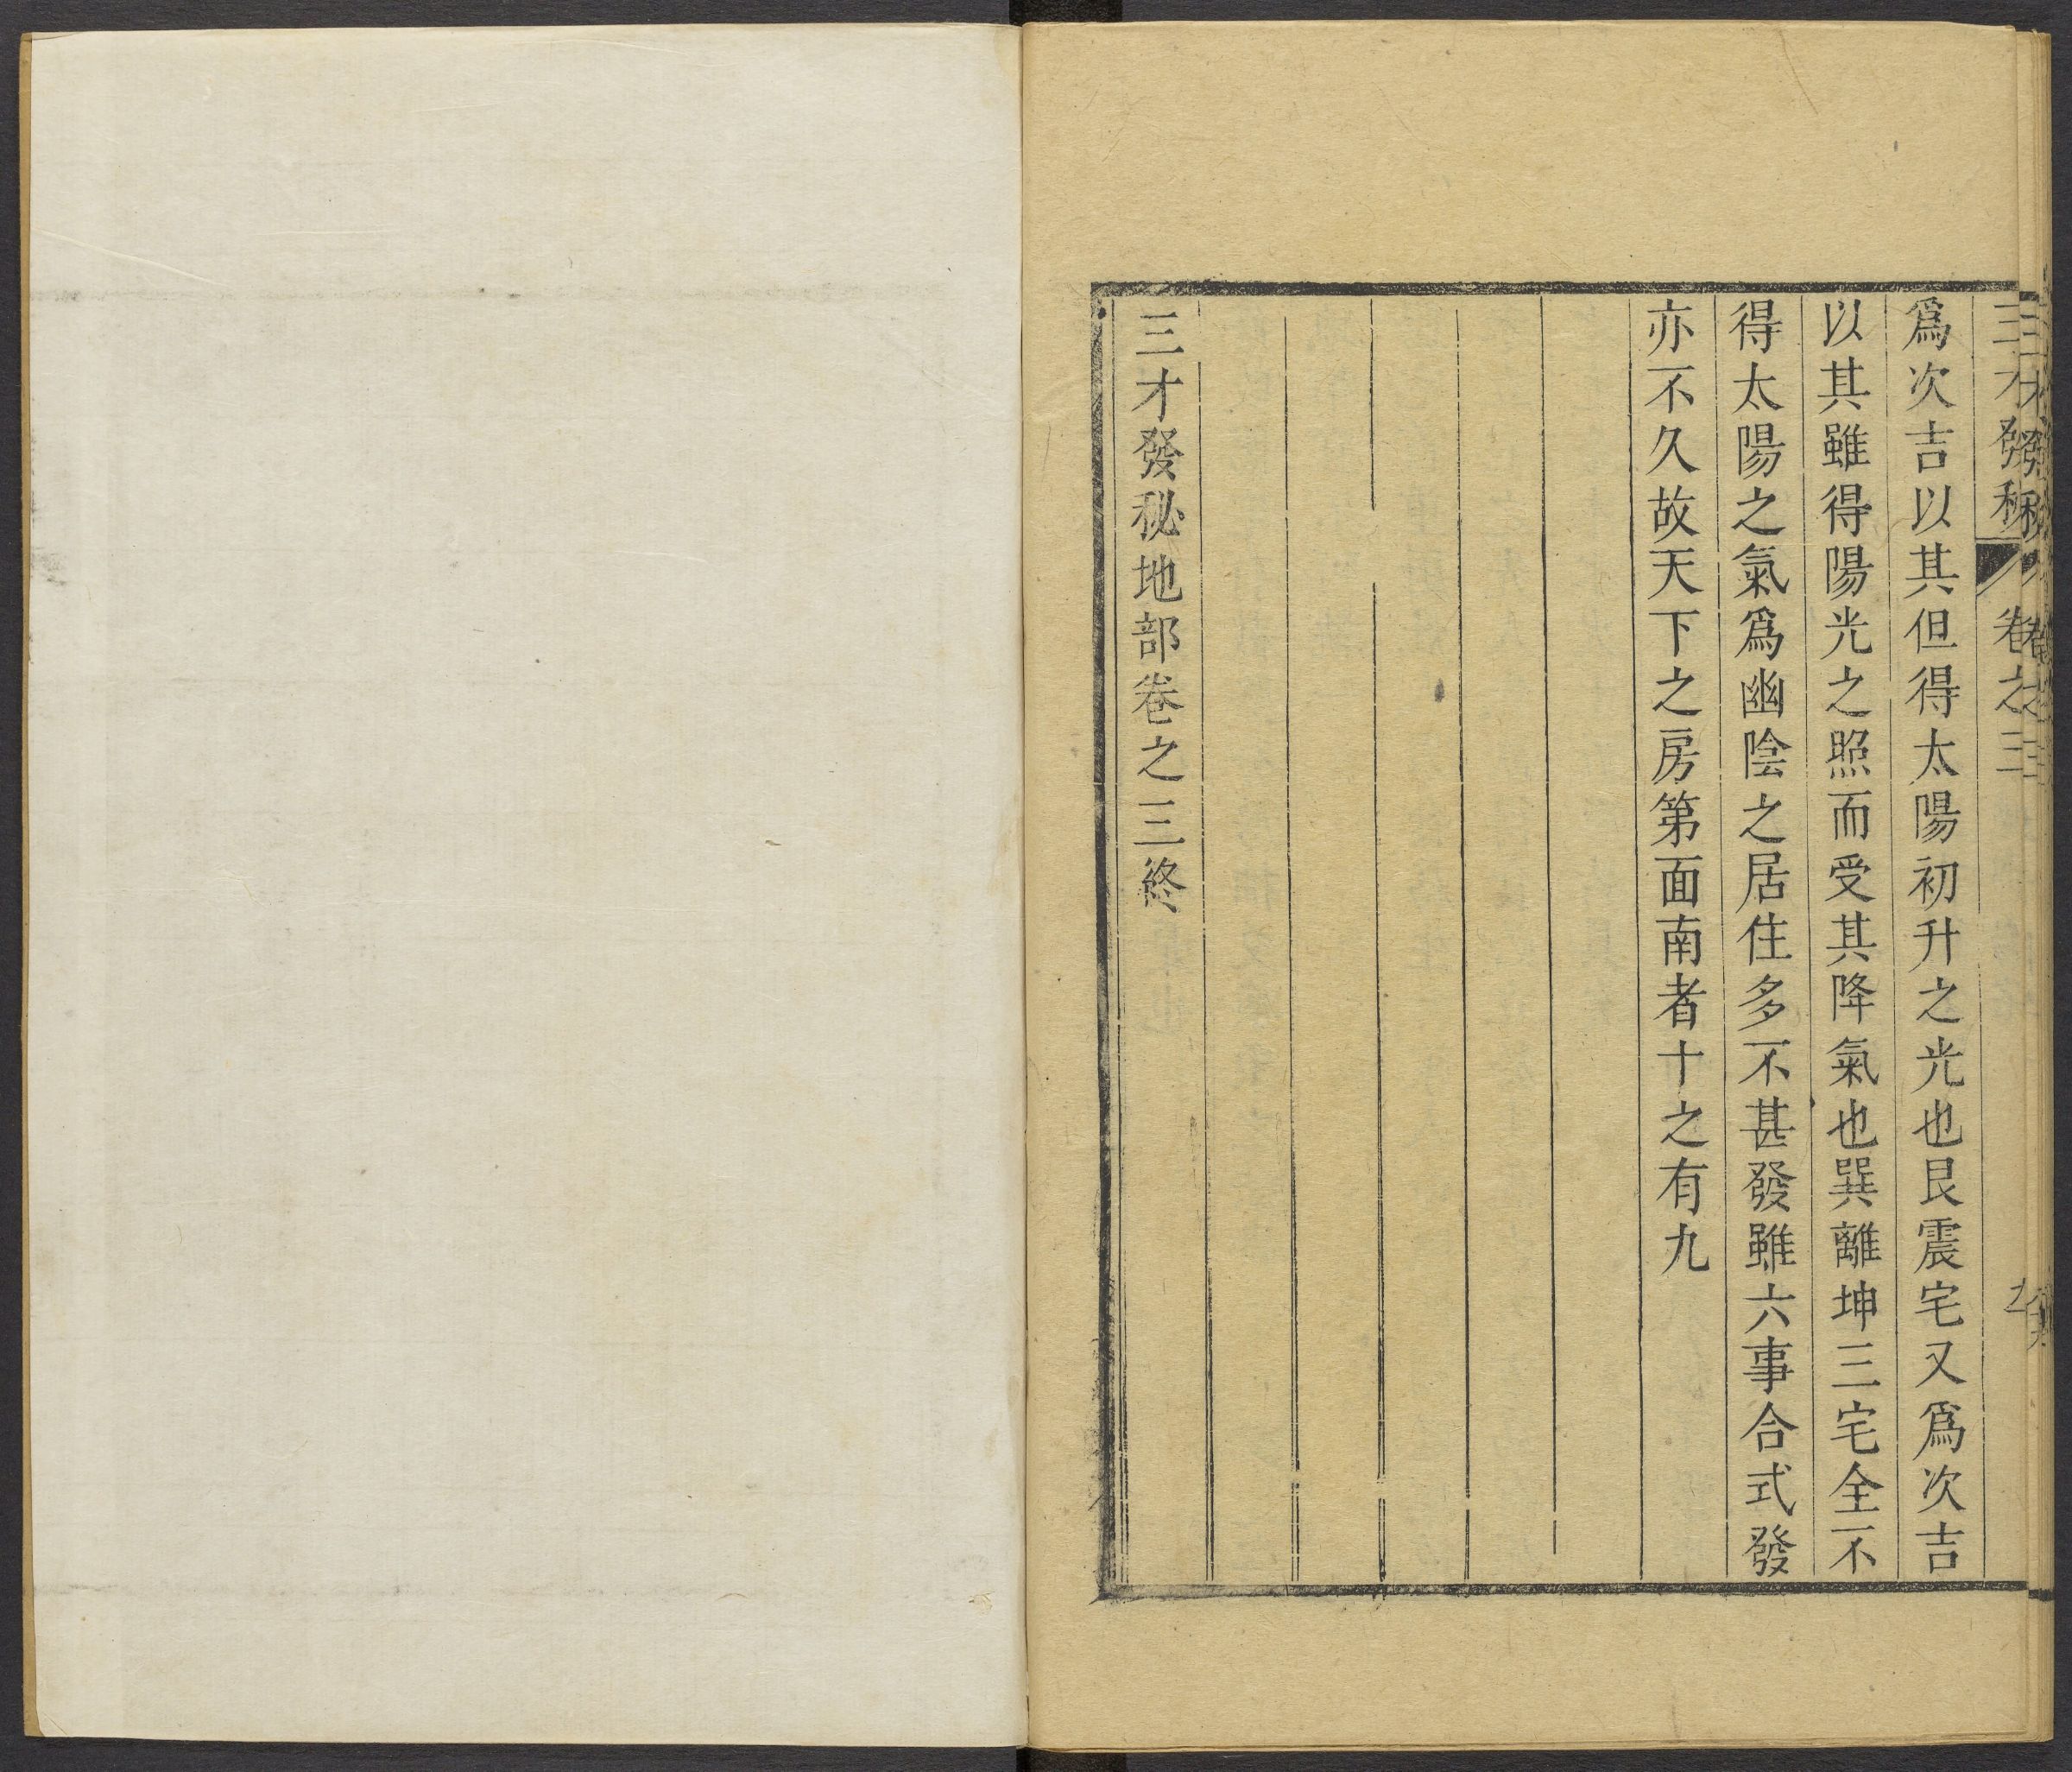 三才發秘 卷之三
爲次吉以其但得太陽初升之光也艮震宅又爲次吉
以其雖得陽光之照而受其降氣也巽離坤三宅全不
得太陽之氣爲幽陰之居住多不甚發雖六事合式發
亦不久故天下之房第面南者十之有九
三才發秘地部卷之三終